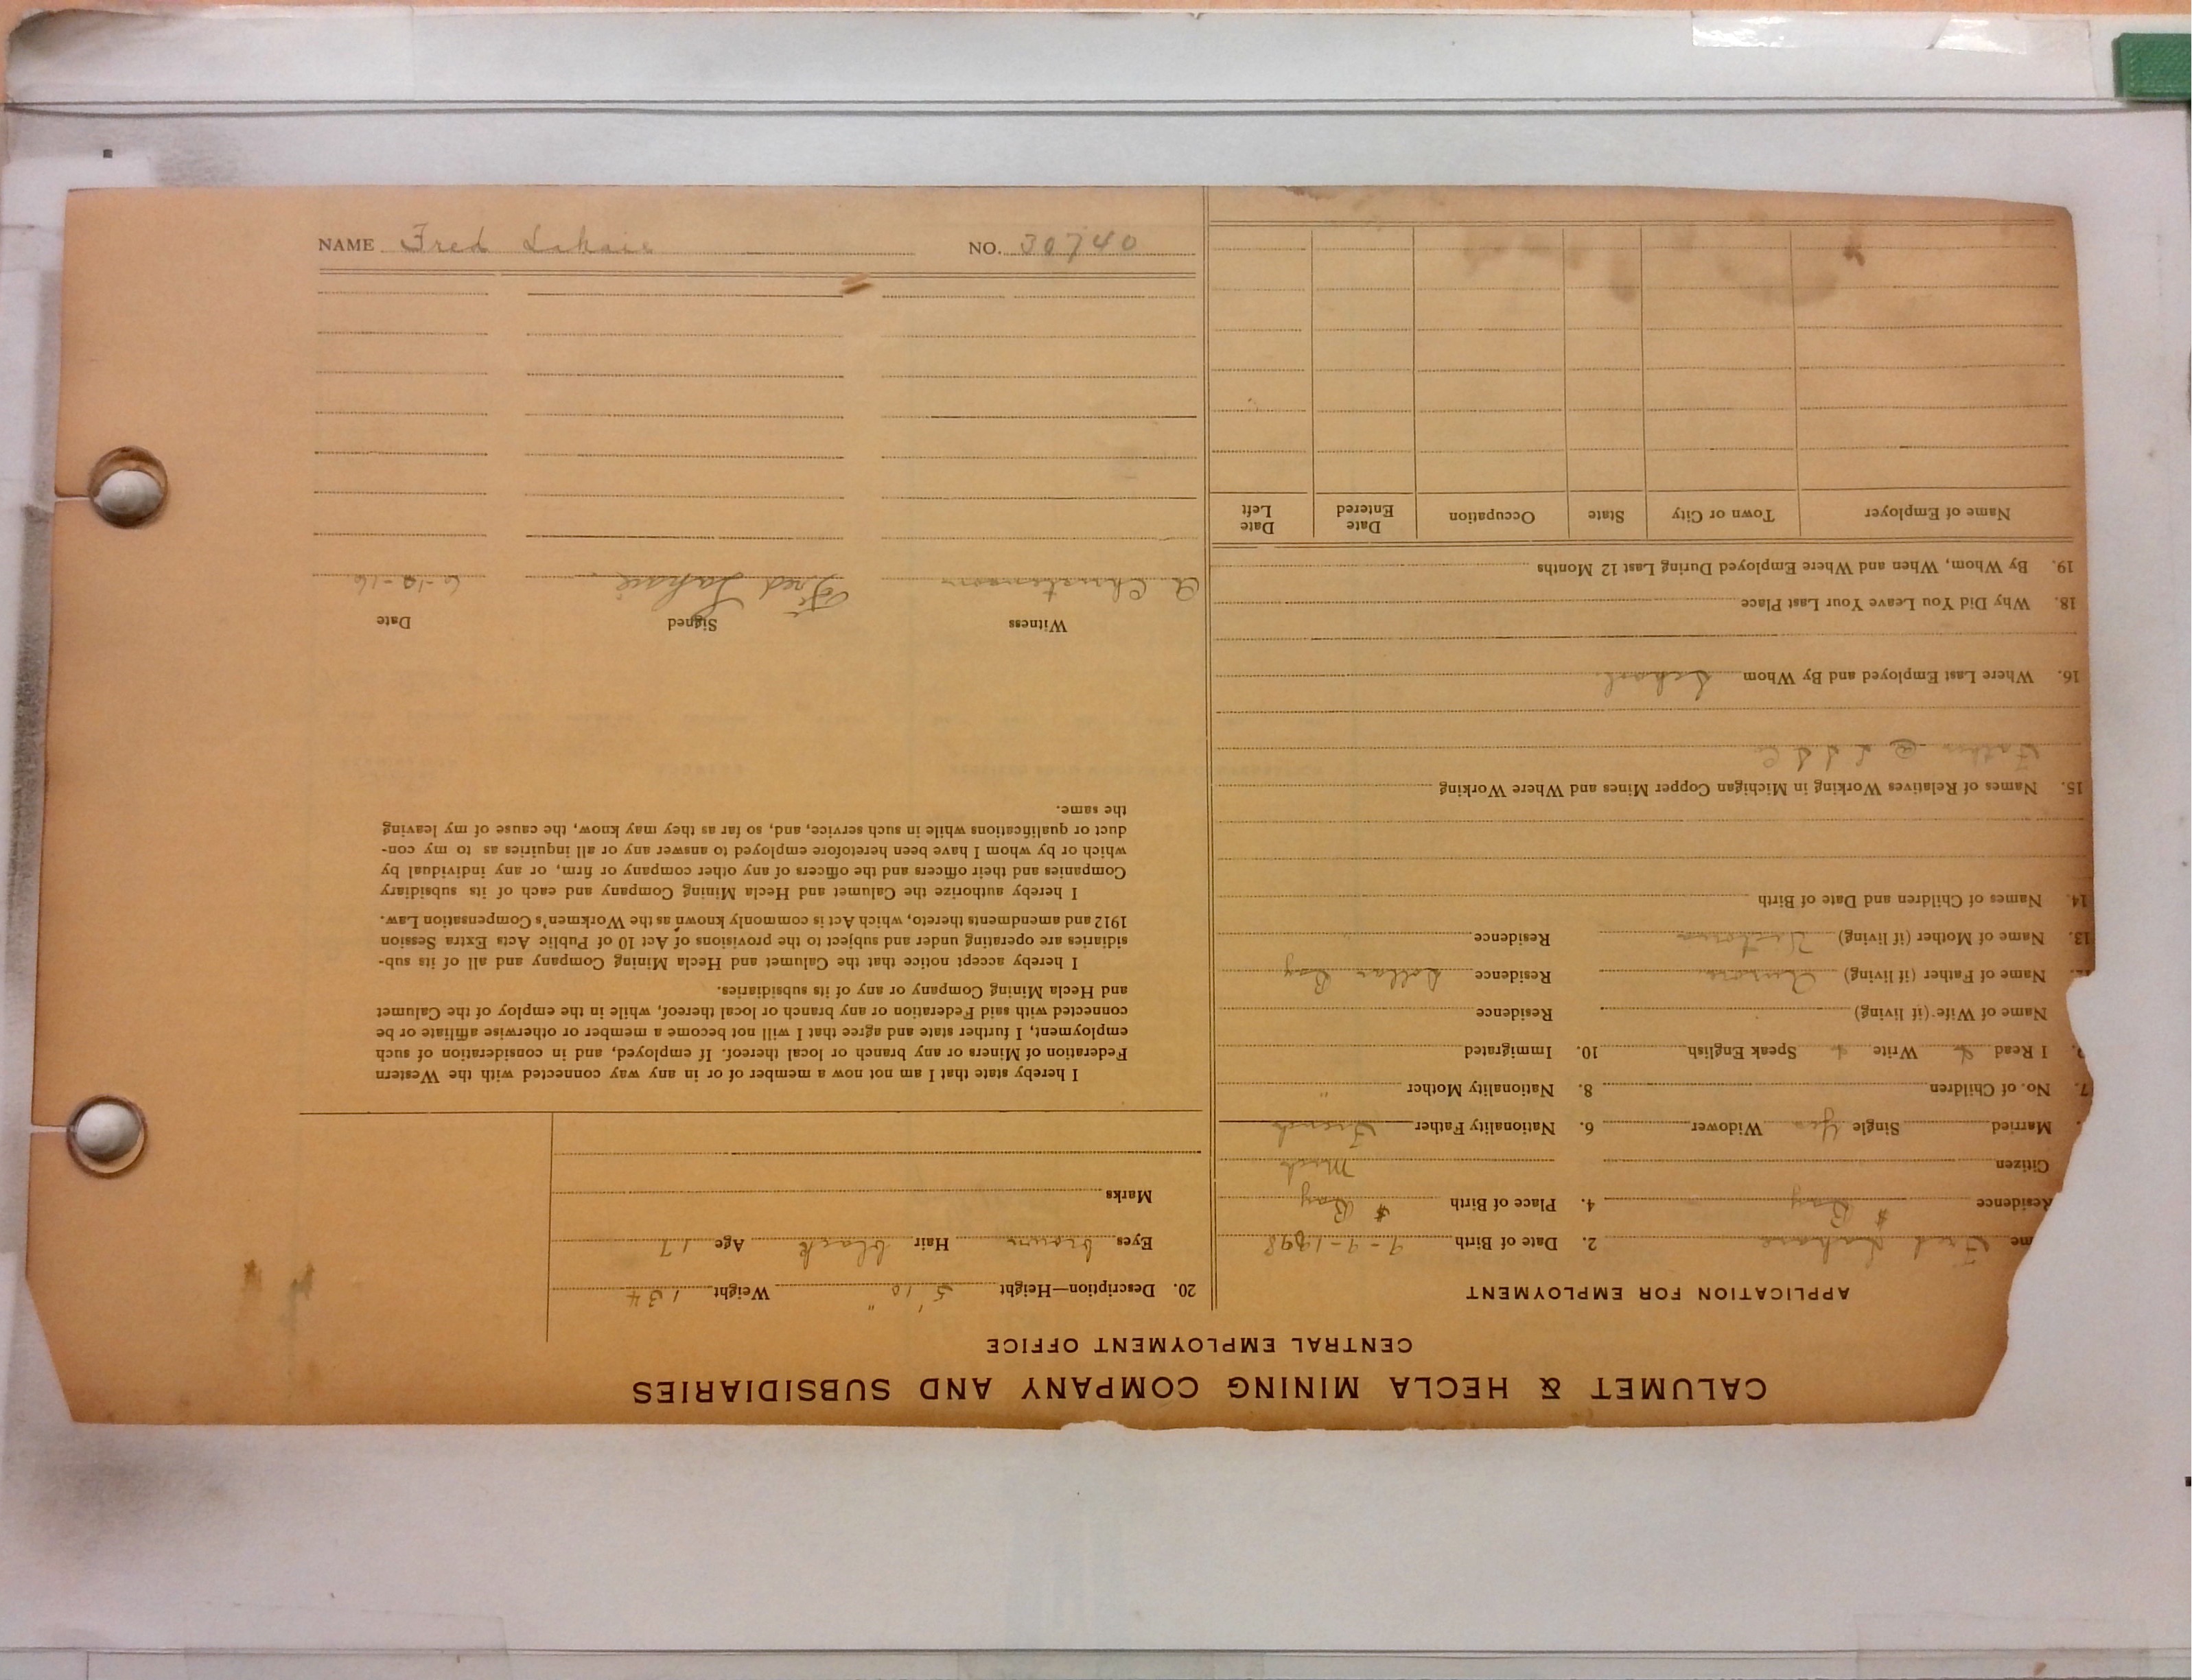 CALUMET & HECLA MINING COMPANY AND SUBSIDIARIES
CENTRAL EMPLOYMENT OFFICE
APPLICATION FOR EMPLOYMENT
me Fred Lahaie 2. Date of Birth 9-9-1898
Residence $ Bay 4. Place of Birth $ Bay
Citizen Mich
Married Single Yes Widower 6. Nationality Father French
7. No. of Children 8. Nationality Mother "
9. I Read Write Speak English 10. Immigrated
Name of Wife (if living) Residence
Name of Father (if living) Residence Dollar Bay
13. Name of Mother (if living) Victoria Residence "
14. Names of Children and Date of Birth
15. Names of Relatives Working in Michigan Copper Mines and Where Working
Father @
16. Where Last Employed and By Whom School
18. Why Did You Leave Your Last Place
19. By Whom, When and Where Employed During Last 12 Months
Name of Employer Town or City State Occupation Date Entered Date Left
20. Description—Height 5' 10" Weight 134
Eyes brown Hair black Age 17
Marks
I hereby state that I am not now a member of or in any way connected with the Western
Federation of Miners or any branch or local thereof. If employed, and in consideration of such
employment, I further state and agree that I will not become a member or otherwise affiliate or be
connected with said Federation or any branch or local thereof, while in the employ of the Calumet
and Hecla Mining Company or any of its subsidiaries.
I hereby accept notice that the Calumet and Hecla Mining Company and all of its sub-
sidiaries are operating under and subject to the provisions of Act 10 of Public Acts Extra Session
1912 and amendments thereto, which Act is commonly known as the Workmen's Compensation Law.
I hereby authorize the Calumet and Hecla Mining Company and each of its subsidiary
Companies and their officers and the officers of any other company or firm, or any individual by
which or by whom I have been heretofore employed to answer any or all inquiries as to my con-
duct or qualifications while in such service, and, so far as they may know, the cause of my leaving
the same.
Witness Signed Date
A. Christenson Fred Lahaie 6-10-16
NAME Fred Lahaie NO. 30740